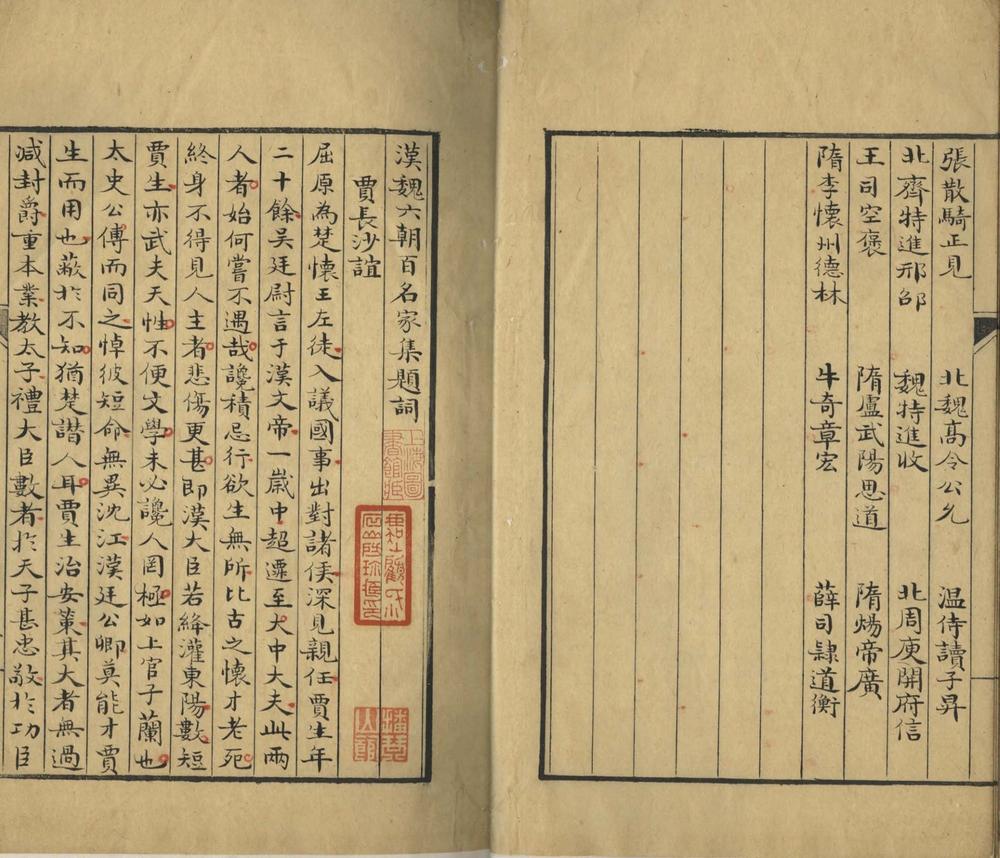 張散騎正見 北魏高令公允 温侍讀子昇
北齊特進邢邵 魏特進收 北周庾開府信
王司空褒 隋盧武陽思道 隋煬帝廣
隋李懷州德林 牛奇章宏 薛司隸道衡
漢魏六朝百名家集題詞
賈長沙誼
屈原為楚懷王左徒入議國事出對諸侯深見親任賈生年
二十餘吳廷尉言于漢文帝一歲中超遷至大中大夫此兩
人者始何嘗不遇哉讒積忌行欲生無所比古之懷才老死
終身不得見人主者悲傷更甚即漢大臣若絳灌東陽數短
賈生亦武夫天性不便文學未必讒人罔極如上官子蘭也
太史公傳而同之悼彼短命無異沈江漢廷公卿莫能才賈
生而用也蔽於不知猶楚譖人耳賈生治安策其大者無過
減封爵重本業教太子禮大臣數者於天子甚忠敬於功臣
上海圖
書館藏